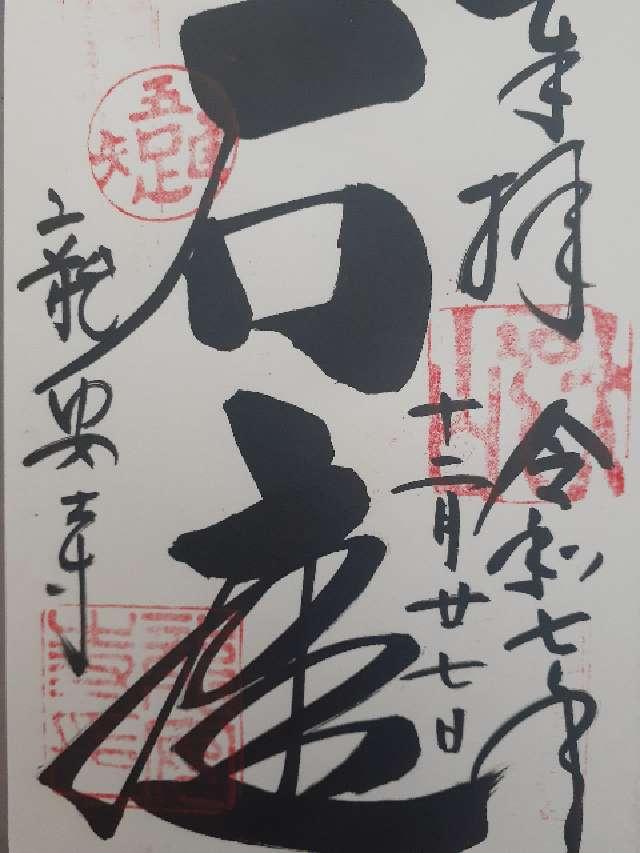 奉拝
令和七年
十二月廿七日
石庭
吾唯足知
龍安寺